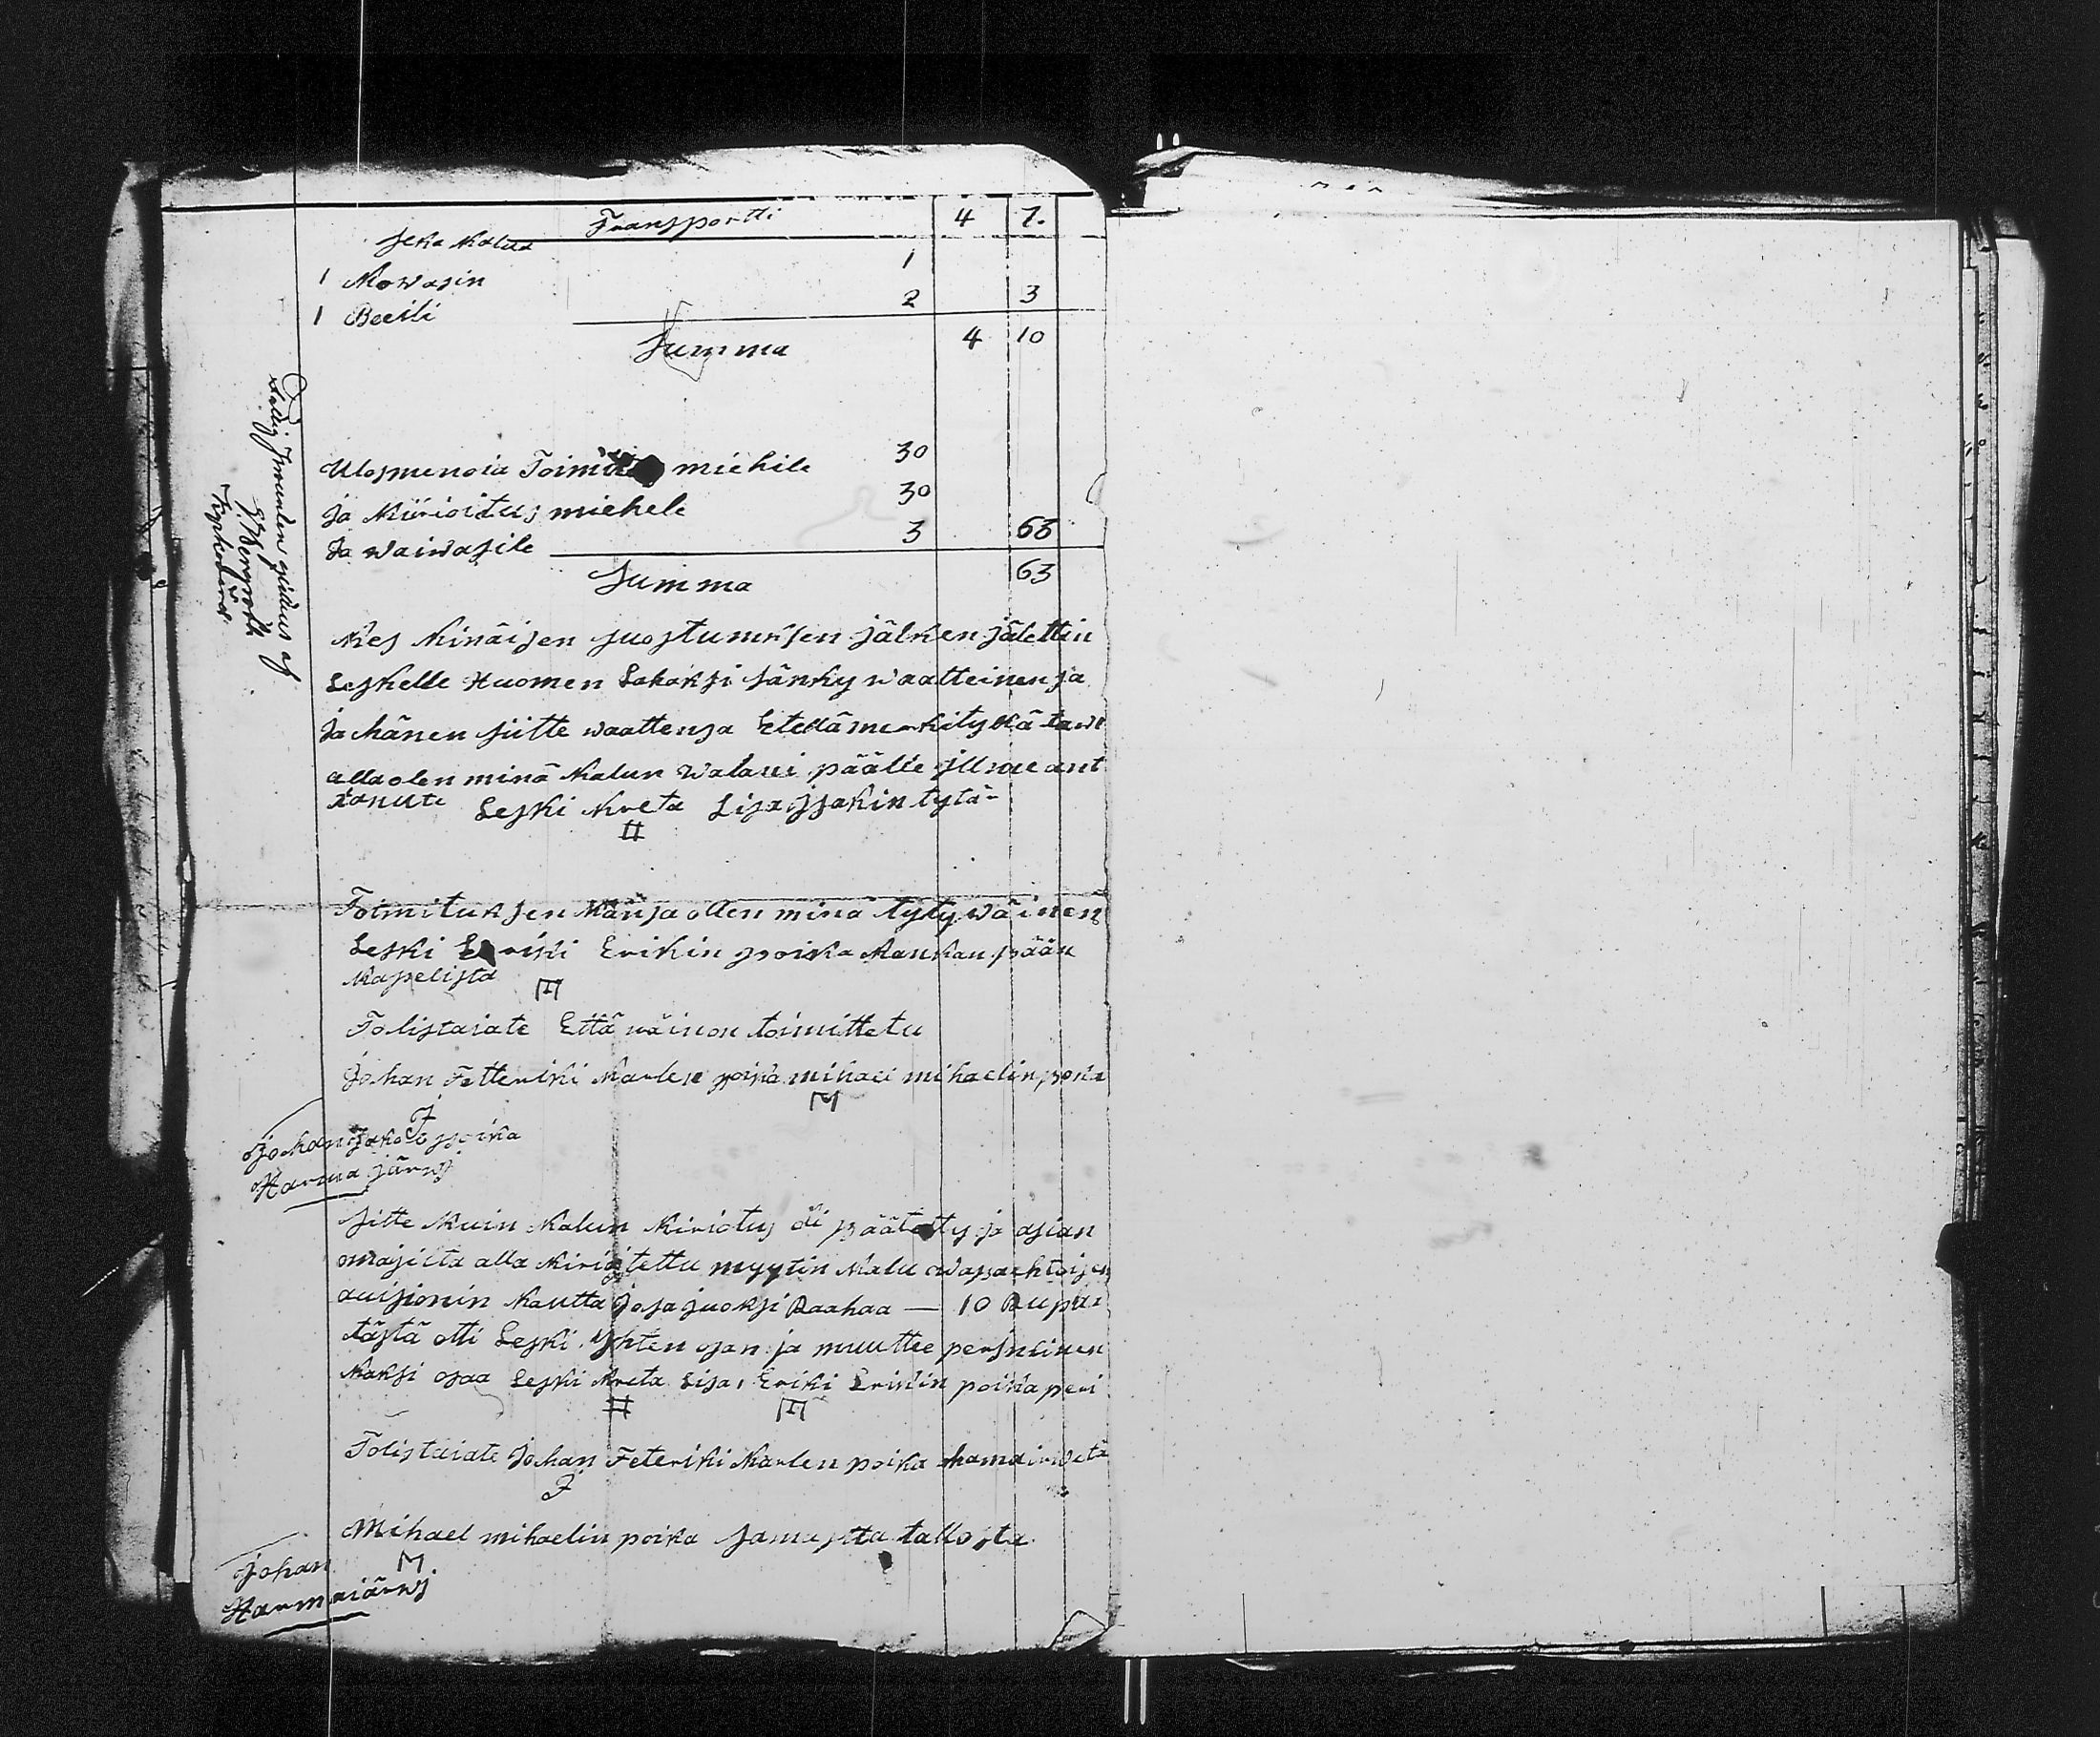 Transportti 4 7.
seka kalua
1 Kowasin 1
1 Beeili 2 3
Summa 4 10
Ulosmenoia miehile 30
ja Kiirioitus miehele 30
Ja waiwasile 3 63
Summa 63
Kes kinäisen suostumksen jälken jätettin
Leskelle Huomen Lahaksi sänky waatteinensa
Ja hänen siitte waattensa Etellä merkityllä tawi
alla olen minä kalun
tanute Leski Kreta Lisa isakin tytär
Toimituksen kansa ollen minä tytywäinen
Leski Eriki Erikin poika kankan pään
kapelista
Tolistaiate Että näin on toimittettu
Johan Fetteriki Karlen poika mihael mihaelin poika
F M
Johan Jakos poika
Harma järwi
Sitte kuin kalun kiriotus oli päätetty ja asian
omasilta alla kirioitettu myytin kalu wapaehtoisen
auisionin kautta josa juoksi Raahaa — 10 Rupla
tästä otti Leski yhten osan ja muuttee persnlinen
kaksi osaa Leski Kreta Lisa, Eriki Erikin poika peri
Tolistaiate Johan Feteriki Karlen poika
F
Mihael mihaelin poika samasta tallosta
M
Johan
Harmaiärwi